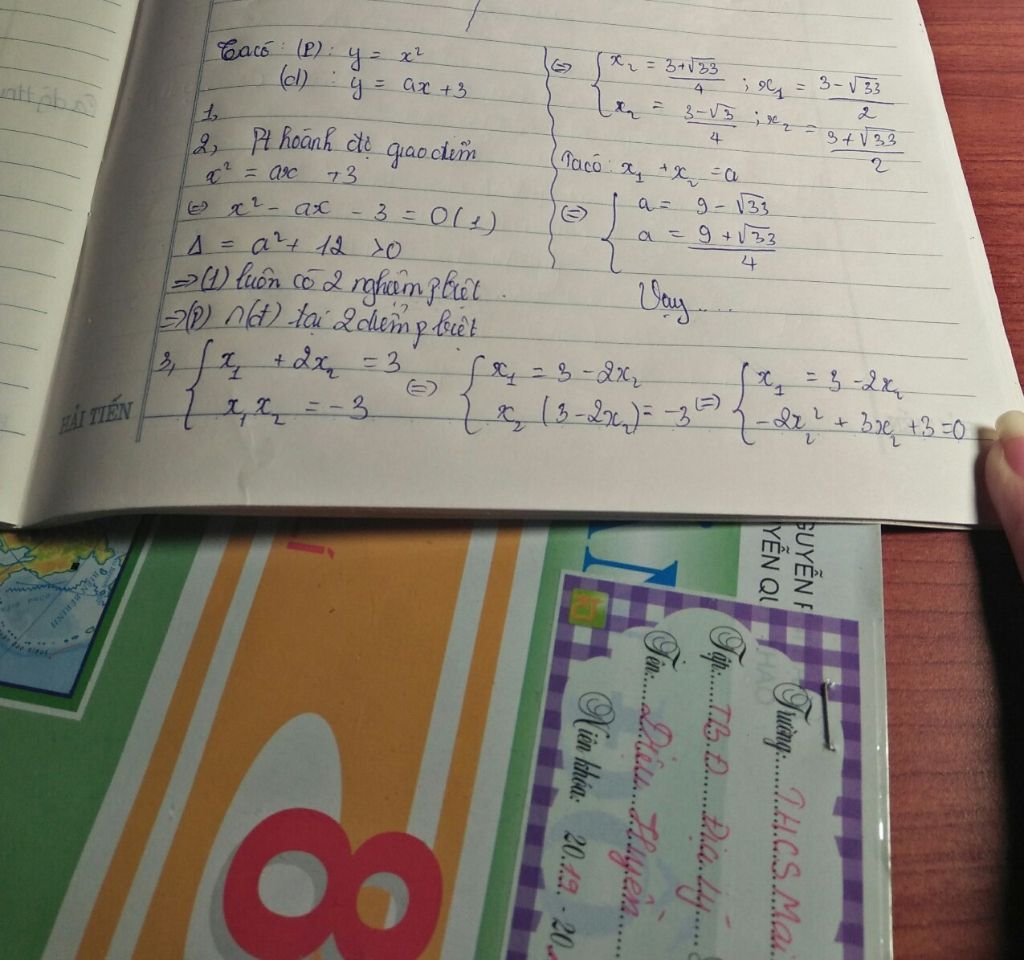 Ta có : (P) : y = x²
(d) : y = ax + 3
1,
2, Pt hoành độ giao điểm
x² = ax + 3
⇔ x² - ax - 3 = 0 (1)
Δ = a² + 12 > 0
⇒ (1) luôn có 2 nghiệm pbiệt
⇒ (P) ∩ (d) tại 2 điểm p biệt
3, { x₁ + 2x₂ = 3 ⇔ { x₁ = 3 - 2x₂ ⇔ { x₁ = 3 - 2x₂
x₁x₂ = -3 x₂ (3 - 2x₂) = -3 -2x₂² + 3x₂ + 3 = 0
⇔ { x₂ = (3+√33)/4 ; x₁ = (3-√33)/2
x₂ = (3-√3)/4 ; x₂ = (3+√33)/2
Ta có : x₁ + x₂ = a
⇔ { a = 9 - √33
a = (9 + √33)/4
Vậy.....
HẢI TIẾN
8
Trường: T.H.C.S Mai
Tập: TB.Đ Địa Lý
Tên: Diệu Huyền
Niên khóa: 20.19 - 20